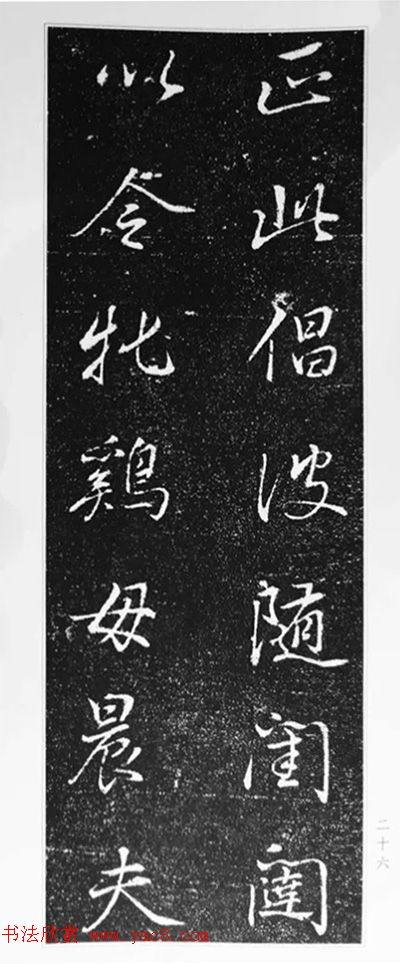 正此倡彼隨閨闈
以令牝鷄毋晨夫
二十六
书法欣赏 www.yac8.com